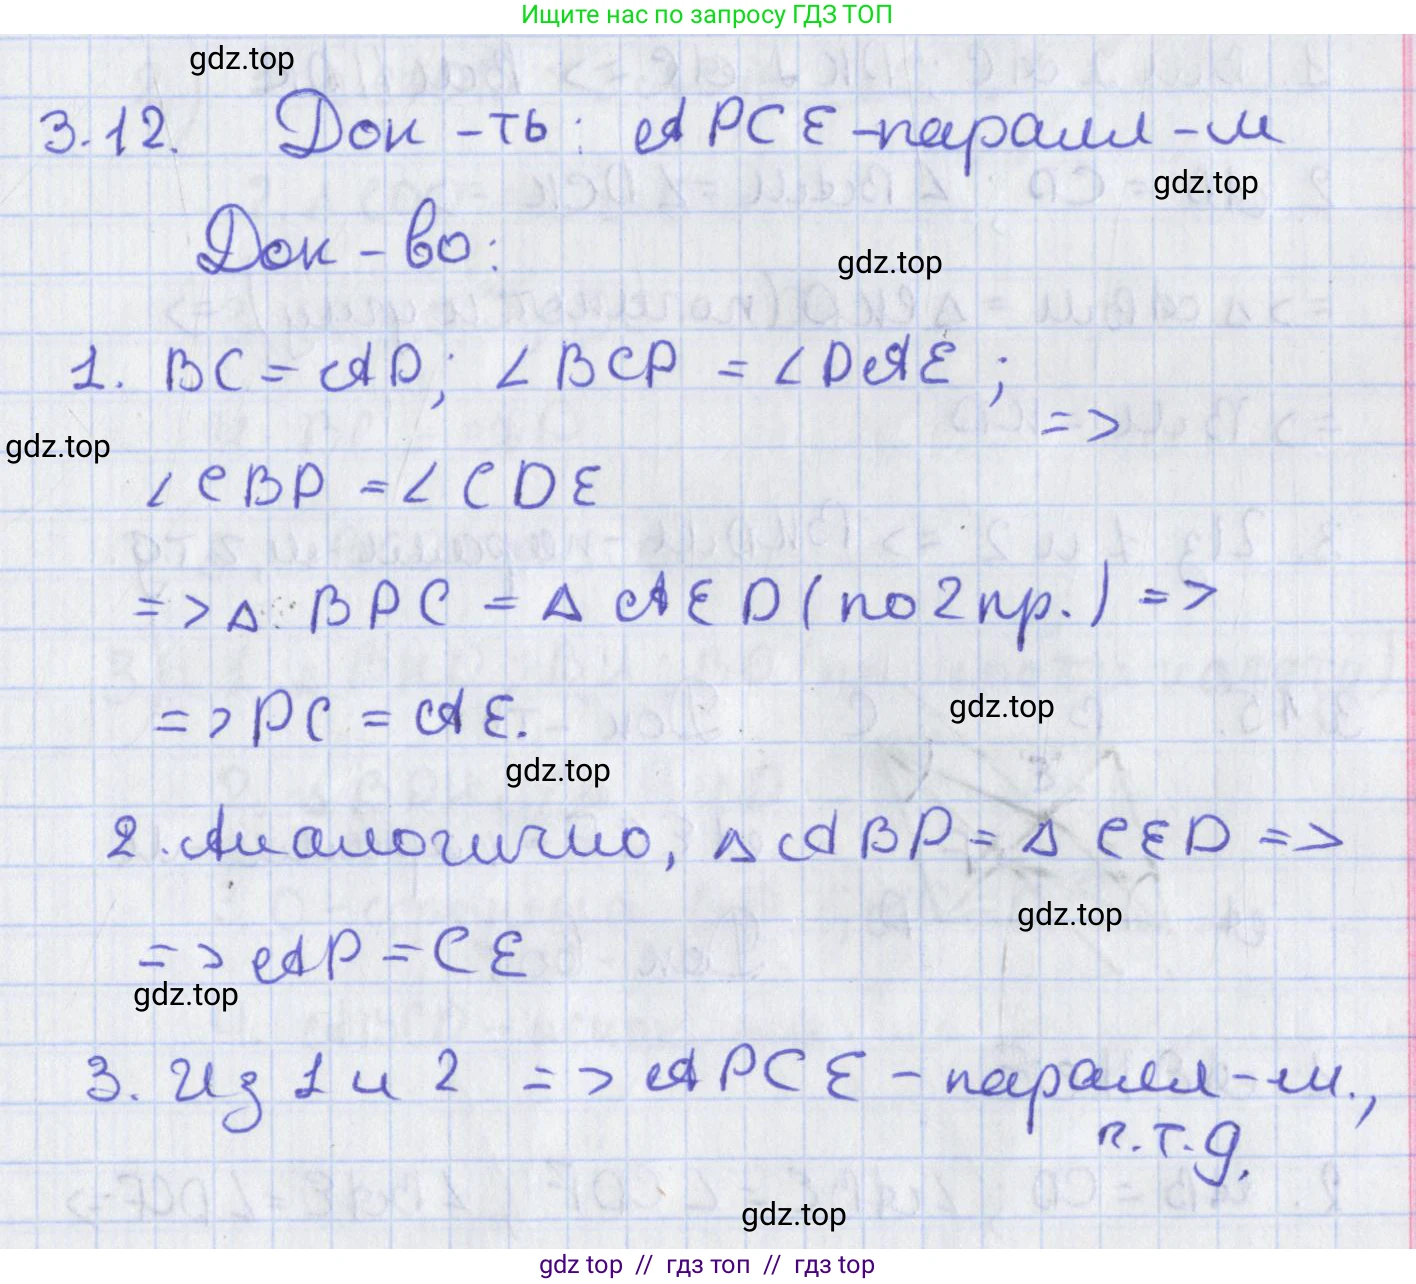 Ищите нас по запросу ГДЗ ТОП
gdz.top
3.12. Док-ть: APCE-паралл-м
gdz.top
Док-во:
gdz.top
1. BC = AD; ∠BCP = ∠DAE; =>
gdz.top
∠CBP = ∠CDE
=> △ BPC = △ AED (по 2 пр.) =>
=> PC = AE.
gdz.top
gdz.top
2. Аналогично, △ABP = △ CED =>
gdz.top
=> AP = CE
gdz.top
3. Из 1 и 2 => APCE - паралл-м.,
ч.т.д.
gdz.top
gdz top // гдз топ // гдз top